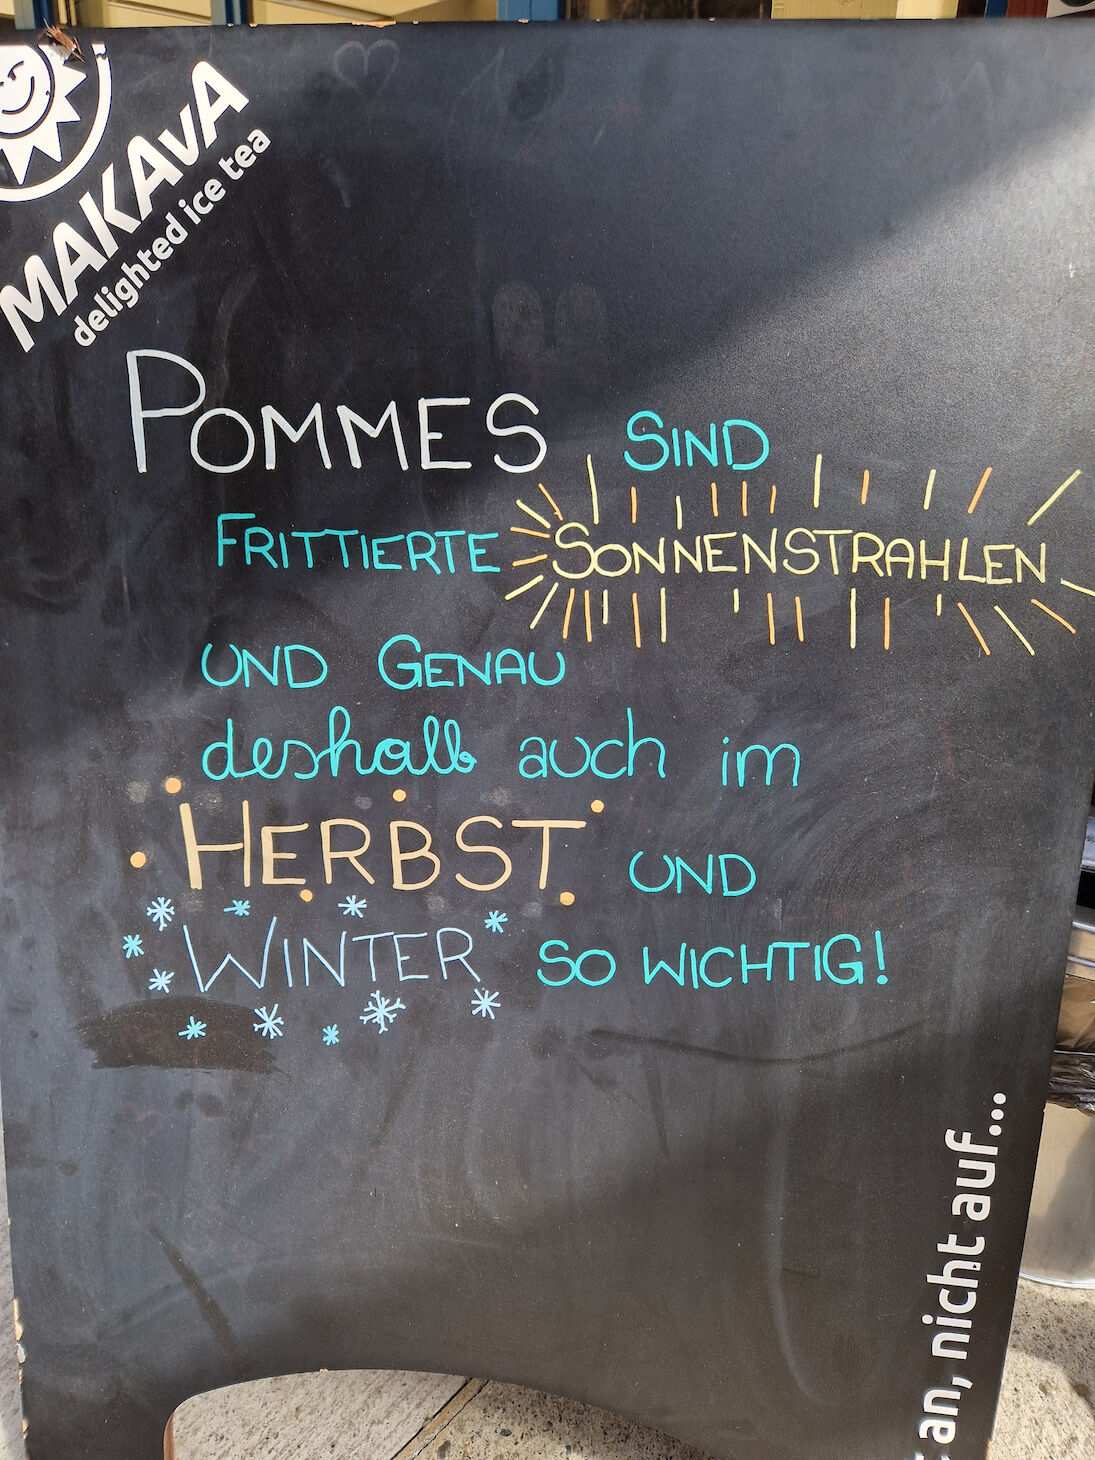 MAKAvA
delighted ice tea
POMMES SIND
FRITTIERTE SONNENSTRAHLEN
UND GENAU
deshalb auch im
HERBST UND
WINTER SO WICHTIG!
an, nicht auf...